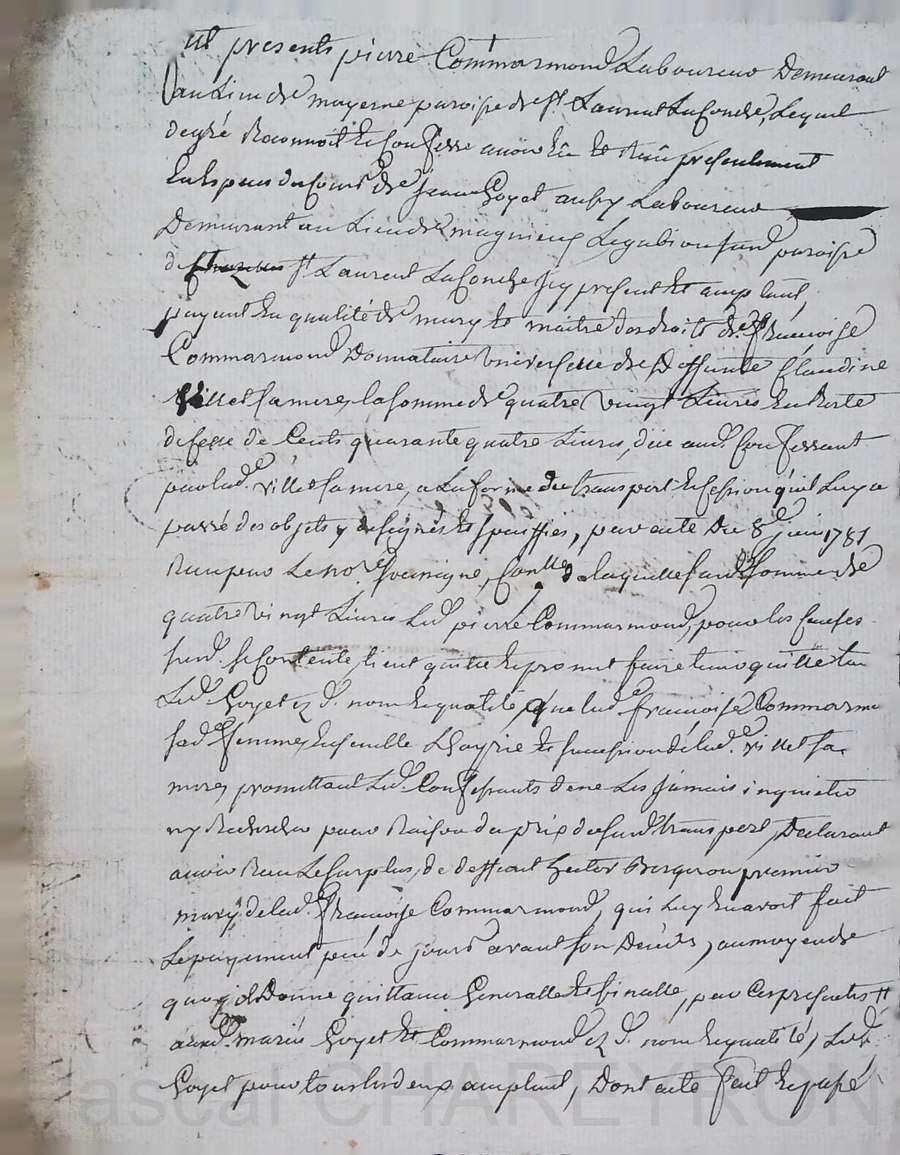 fut presents pierre Commarmond Laboureur Demeurant
au Lieu de mayerne paroisse de st. Laurent La Conche, Lequel
de gré Reconnoit et Confesse avoir eu et Recu presentement
en Espece du Cours de jean Goyet aussy Laboureur
Demeurant au Lieu de magnieu Legabion susd. paroisse
de st Laurent La Conche jcy present et acceptant,
payant en qualité de mary et maitre des droits de françoise
Commarmond Donnataire universelle de Deffunte Claudine
Villet sa mere, la somme de quatre vingt Livres En Reste
de celle de Cents quarante quatre Livres, düe aud. Confessant
par lad. Villet sa mere, a La forme du transport et cession qu'il Luy a
passé des objets y designés et speciffiés, par acte Du 8e juin 1781
Recu par Le no.re de laquelle susd. somme de
quatre vingt Livres Led. pierre Commarmond, pour les causes
susd. se Contente, tient quitte et promet faire tenir quitte tant
Led. Goyet esd. nom et qualité, que lad. francoise Commarmond
sad. femme, Ensemble L'hoyrie et succession de lad. Villet sa
mere, promettant Led. Confessant de ne Les jamais inquieter
ny Rechercher pour Raison du prix dud. susd. transport, Declarant
avoir Recu Le surplus, de deffunt hector Bergeron premier
mary de lad. françoise Commarmond, qui Luy en avoit fait
Le payement peu de jours avant son Decés, au moyen de
quoy il Donne quittance Generalle et finalle, par Ces presentes
auxd. mariés Goyet et Commarmond esd. nom et qualité, Led.
Goyet pour tous les deux acceptant, Dont acte fait et passé
Pascal CHAREYRON